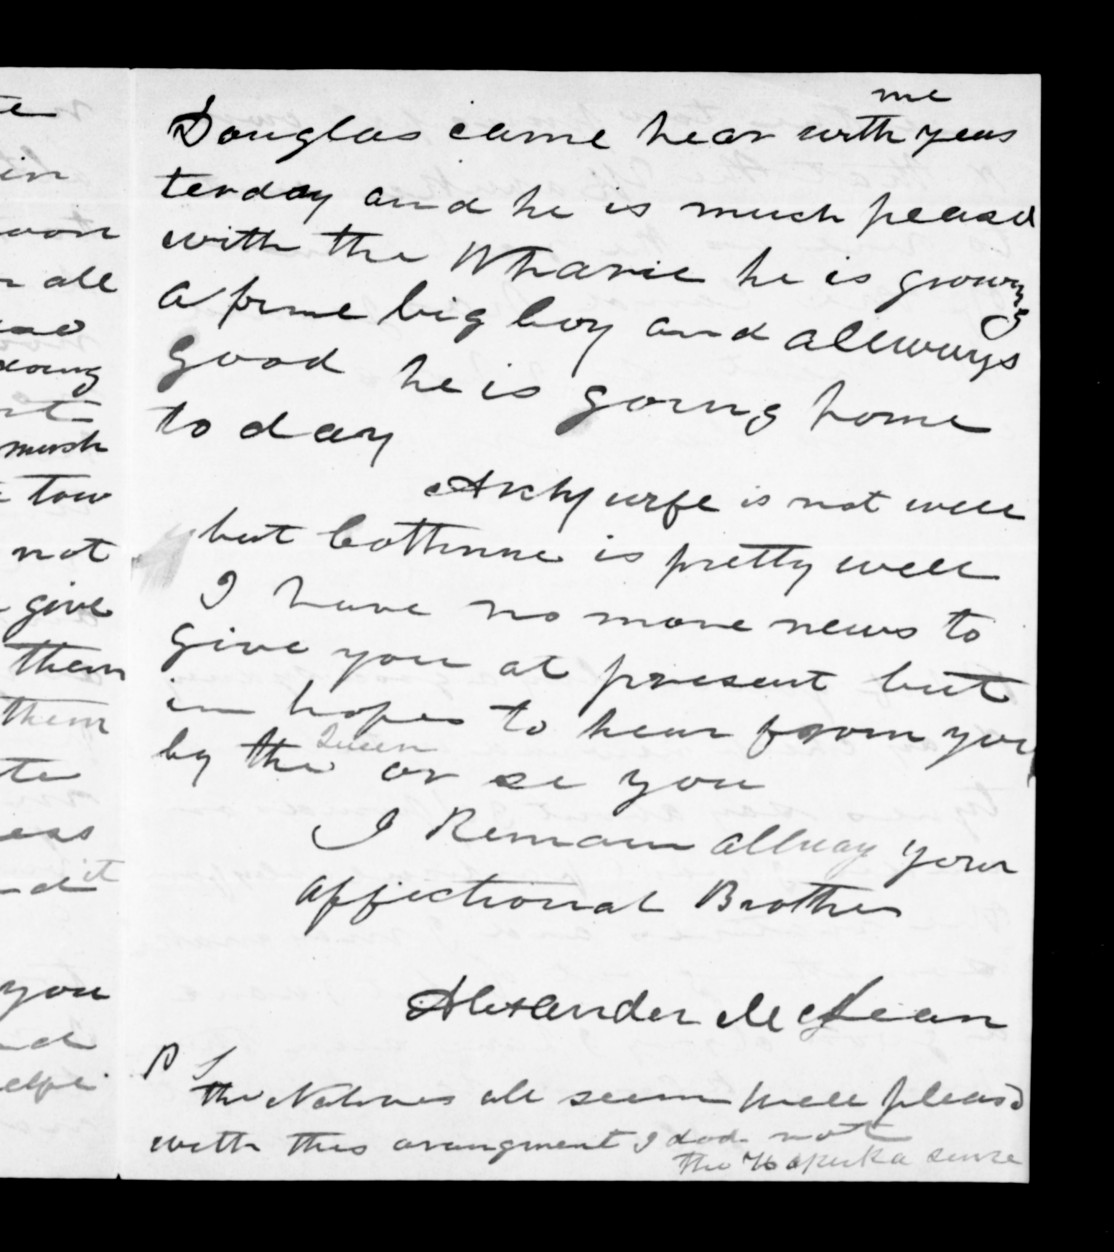 te
in
oon
all
oung
much
tow
not
give
them
them
te
ess
nd it
you
nd
me
Douglas came hear with yeas
terday and he is much pleasd
with the Wharie he is growing
a fine big boy and allways
good he is going home
to day
Archy wife is not well
but Cathrine is pretty well
I have no more news to
give you at present but
in hopes to hear from you
Queen
by the or se you
I Remain allway your
affectionat Brother
Alexander McLean
P S
the Natives all seem well pleasd
with this arangment I not
the Hapuka sense